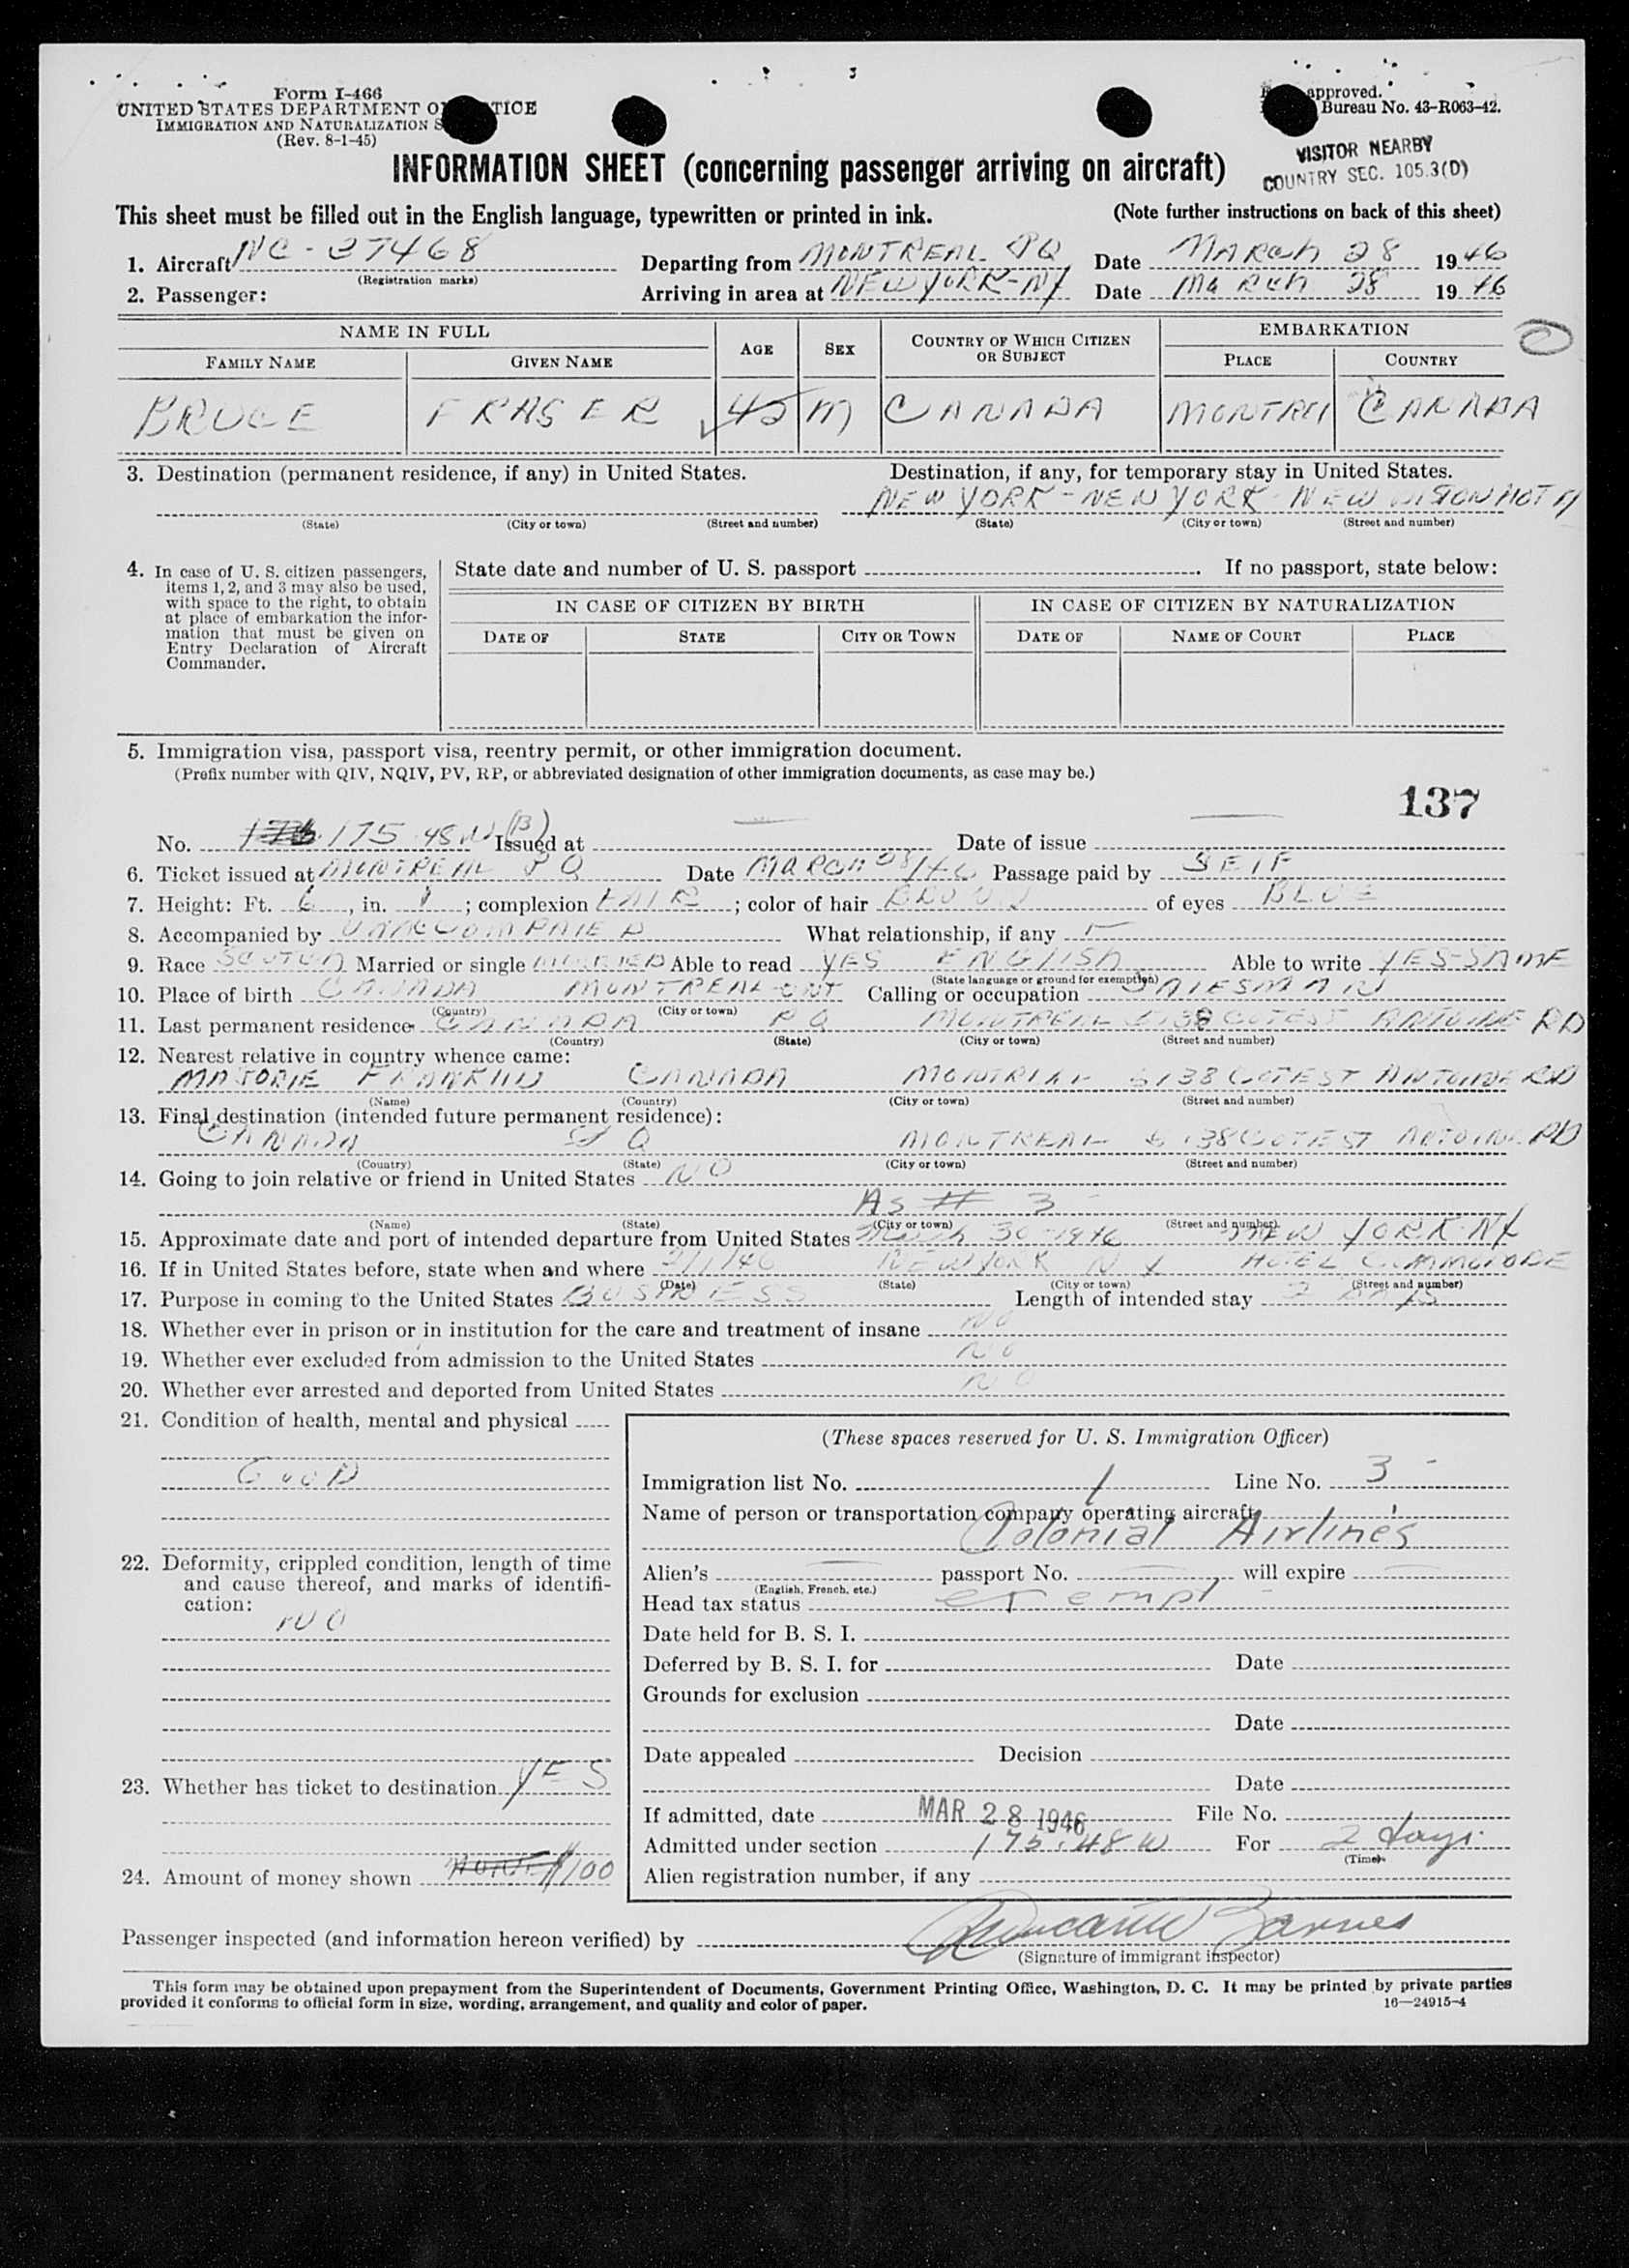 Form I-466
UNITED STATES DEPARTMENT O TICE
IMMIGRATION AND NATURALIZATION S
(Rev. 8-1-45)
approved.
Bureau No. 43-R063-42.
VISITOR NEARBY
COUNTRY SEC. 105.3(D)
INFORMATION SHEET (concerning passenger arriving on aircraft)
This sheet must be filled out in the English language, typewritten or printed in ink. (Note further instructions on back of this sheet)
1. Aircraft NC-37468 Departing from MONTREAL PQ Date MARCH 28 1946
(Registration marks)
2. Passenger: Arriving in area at NEW YORK-NY Date MARCH 28 1946
NAME IN FULL AGE SEX COUNTRY OF WHICH CITIZEN OR SUBJECT EMBARKATION
FAMILY NAME GIVEN NAME PLACE COUNTRY
BRUCE FRASER 45 M CANADA MONTREL CANADA
3. Destination (permanent residence, if any) in United States. Destination, if any, for temporary stay in United States.
NEW YORK-NEW YORK-NEW HOTEL
(State) (City or town) (Street and number) (State) (City or town) (Street and number)
4. In case of U. S. citizen passengers, items 1, 2, and 3 may also be used, with space to the right, to obtain at place of embarkation the information that must be given on Entry Declaration of Aircraft Commander.
State date and number of U. S. passport . If no passport, state below:
IN CASE OF CITIZEN BY BIRTH IN CASE OF CITIZEN BY NATURALIZATION
DATE OF STATE CITY OR TOWN DATE OF NAME OF COURT PLACE
5. Immigration visa, passport visa, reentry permit, or other immigration document.
(Prefix number with QIV, NQIV, PV, RP, or abbreviated designation of other immigration documents, as case may be.)
137
No. 175.48W (B) Issued at Date of issue
6. Ticket issued at MONTREAL PQ Date MARCH 28/46 Passage paid by SELF
7. Height: Ft. 6, in. 1; complexion FAIR; color of hair BROWN of eyes BLUE
8. Accompanied by UNACCOMPANIED What relationship, if any —
9. Race SCOTCH Married or single MARRIED Able to read YES ENGLISH Able to write YES-SAME
(State language or ground for exemption)
10. Place of birth CANADA MONTREAL-ONT Calling or occupation SALESMAN
(Country) (City or town)
11. Last permanent residence CANADA PQ MONTREAL 5138 COTE ST ANTOINE RD
(Country) (State) (City or town) (Street and number)
12. Nearest relative in country whence came:
MARJORIE CANADA MONTREAL 5138 COTE ST ANTOINE RD
(Name) (Country) (City or town) (Street and number)
13. Final destination (intended future permanent residence):
CANADA PQ MONTREAL 5138 COTE ST ANTOINE RD
(Country) (State) (City or town) (Street and number)
14. Going to join relative or friend in United States NO
As # 3
(Name) (State) (City or town) (Street and number)
15. Approximate date and port of intended departure from United States March 30-1946 NEW YORK-NY
16. If in United States before, state when and where /1/46 NEW YORK NY HOTEL COMMODORE
(Date) (State) (City or town) (Street and number)
17. Purpose in coming to the United States BUSINESS Length of intended stay 2 DAYS
18. Whether ever in prison or in institution for the care and treatment of insane NO
19. Whether ever excluded from admission to the United States NO
20. Whether ever arrested and deported from United States NO
21. Condition of health, mental and physical
GOOD
22. Deformity, crippled condition, length of time and cause thereof, and marks of identification:
NO
23. Whether has ticket to destination YES
24. Amount of money shown NONE $100
(These spaces reserved for U. S. Immigration Officer)
Immigration list No. 1 Line No. 3
Name of person or transportation company operating aircraft
Colonial Airlines
Alien's passport No. will expire
(English, French, etc.)
Head tax status exempt
Date held for B. S. I.
Deferred by B. S. I. for Date
Grounds for exclusion
Date
Date appealed Decision
Date
If admitted, date MAR 28 1946 File No.
Admitted under section 175.48W For 2 days
(Time)
Alien registration number, if any
Passenger inspected (and information hereon verified) by Barnes
(Signature of immigrant inspector)
This form may be obtained upon prepayment from the Superintendent of Documents, Government Printing Office, Washington, D. C. It may be printed by private parties
provided it conforms to official form in size, wording, arrangement, and quality and color of paper. 16—24915-4